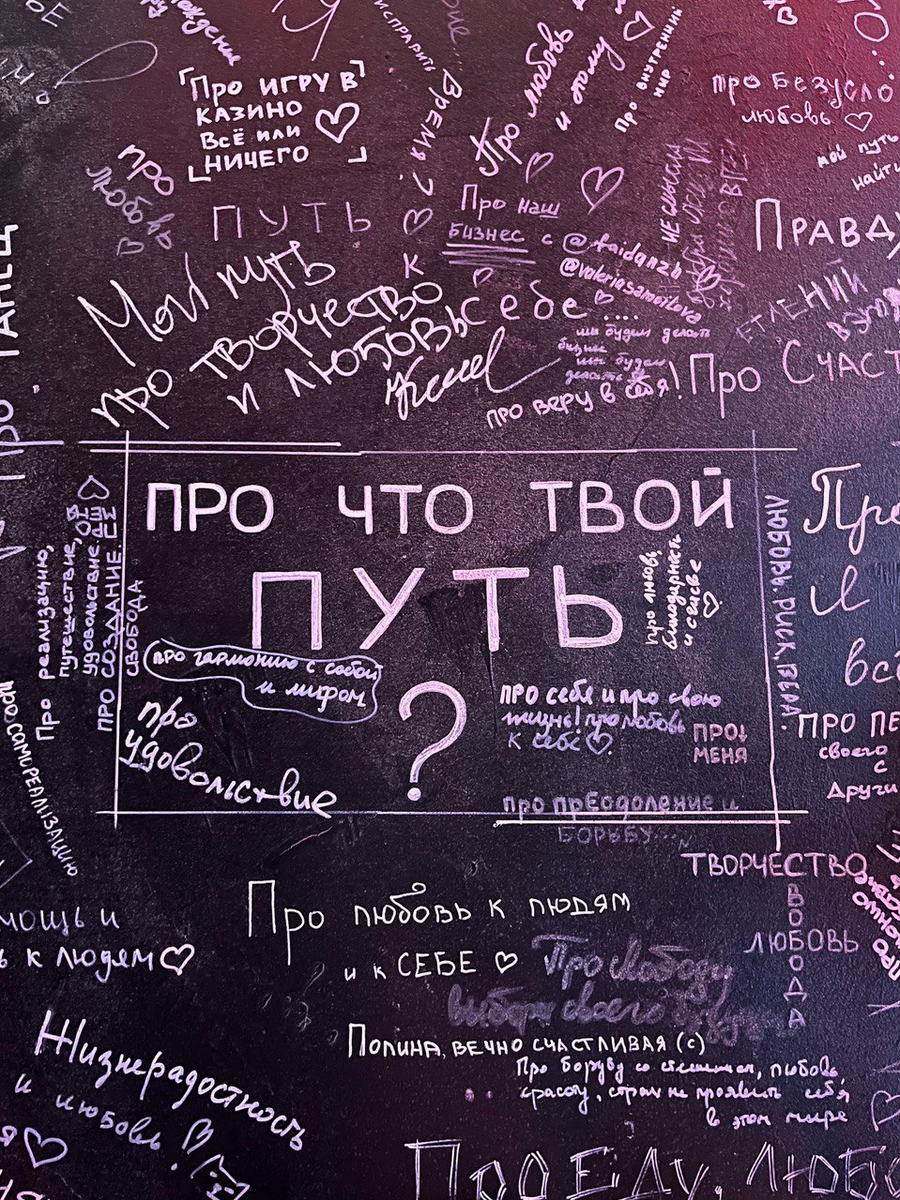 Про игру в
казино
Всё или
ничего
исправить
Время?
Про любовь
и
Про внутренний
мир
про Безусло
любовь
мой путь
найти
про
любовь
ПУТЬ
Про наш
Бизнес с @faidanzh
@valeriasamoilova
Правду
Мой путь
про творчество
и любовь
к
Себе....
мы будем делать
бизнес
мы будем
делать
про веру в себя!
Про Счаст
ПРО ЧТО ТВОЙ
ПУТЬ
?
Про реализацию,
путешествие,
удовольствие
ПРО СОЗДАНИЕ.
СВОБОДА
про любовь,
благодарность
и
ЛЮБОВЬ. РИСК.
про гармонию с собой
и мифом
про
удовольствие
про себя и про свою
жизнь! про любовь
к себе
ПРО
МЕНЯ
про преодоление и
борьбу...
И
всё
ПРО ПЕ
своего
с
Други
самореализацию
ТВОРЧЕСТВО
СВОБОДА
ЛЮБОВЬ
мощь и
ь к людям
Про любовь к людям
и к СЕБЕ
Про свободу
выбора своего
Полина, вечно счастливая (с)
Про борьбу со
любовь,
красоту, страх не проявить себя
в этом мире
Жизнерадостность
и любовь!
Про Еду, Любо